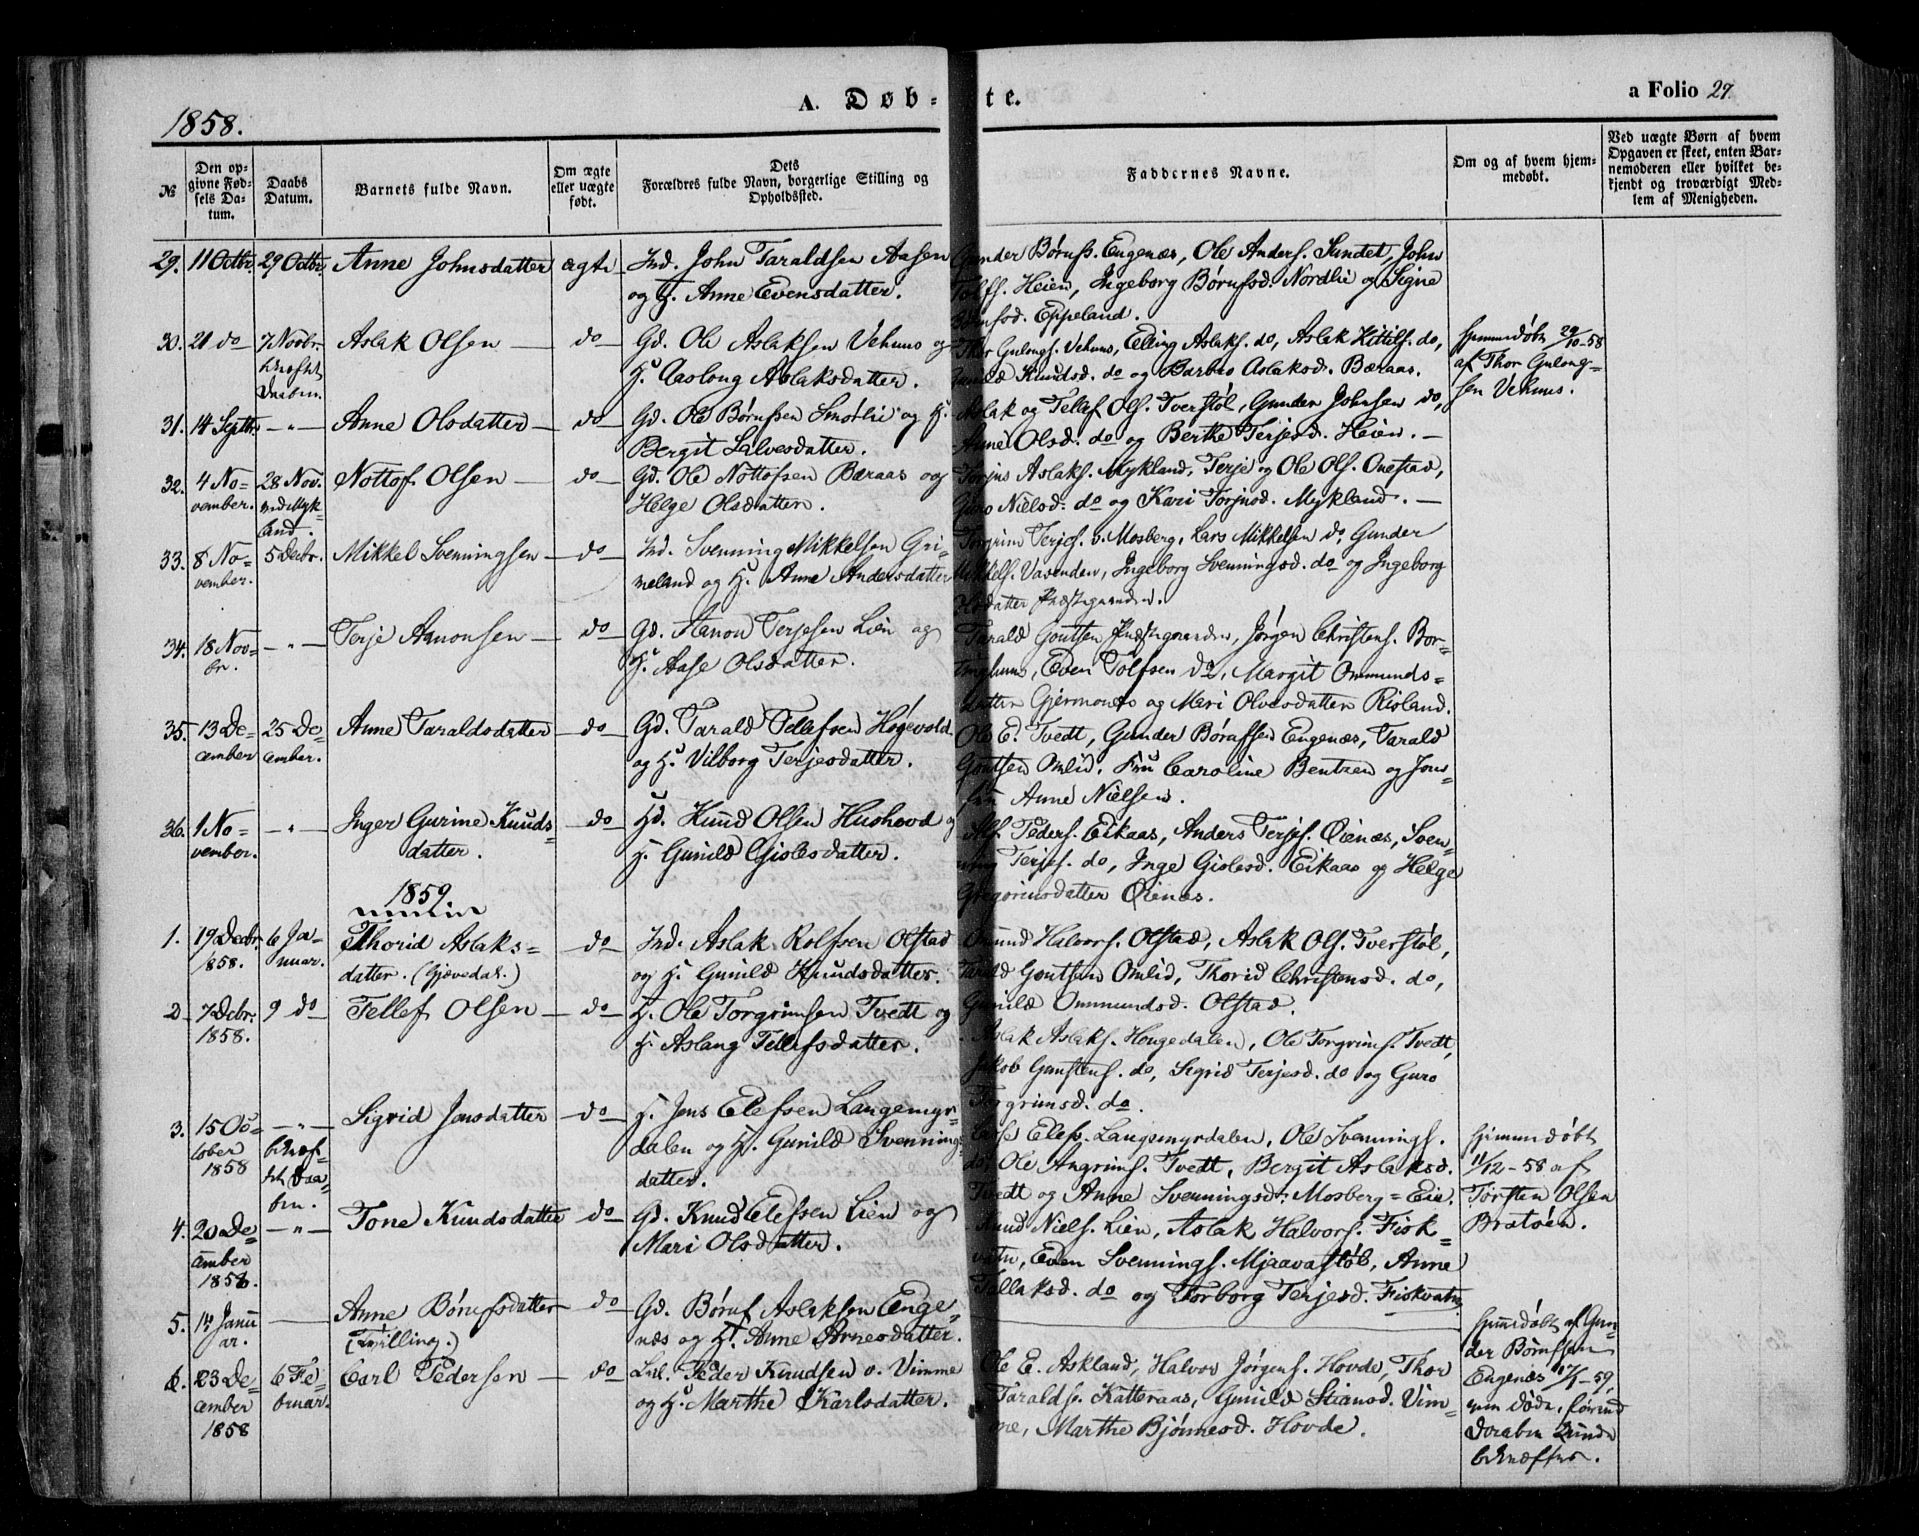 1858.
A. Døb-te.
a Folio 27.
№
Den op-
givne Fød-
sels Da-
tum.
Daabs
Datum.
Barnets fulde Navn.
Om ægte
eller uægte
født.
Dets
Forældres fulde Navn, borgerlige Stilling og
Opholdssted.
Faddernes Navne.
Om og af hvem hjem-
medøbt.
Ved uægte Børn af hvem
Opgaven er skeet, enten Bar-
nemoderen eller hvilket be-
kjendt og troværdigt Med-
lem af Menigheden.
29. 11 Octbr. 29 Octbr. Anne Johnsdatter ægte Ind. John Taraldsen Aasen
og H. Anne Evensdatter.
Gunder Børufs. Engenæs, Ole Anders. Sundet, John
Tolfs. Heien, Ingeborg Børufsd. Nordlie og Signe
Børufsd. Eppeland.
30. 21 do 7 Novbr. Aslak Olsen — do — Gd. Ole Aslaksen Vehuus og
H. Aaslong Aslaksdatter.
Thor Gulongs. Vehuus, Elling Aslaks. do, Aslak Kittils. do,
Gunild Knudsd. do og Barbro Aslaksd. Bæraas.
Hjemmedøbt 29/10-58
af Thor Gulong-
sen Vehuus.
31. 14 Septbr. -"- Anne Olsdatter — do — Gd. Ole Børufsen Smørlie og H.
Bergit Salvesdatter.
Aslak og Tellef Ols. Tverstøl, Gunder Johnsen do,
Anne Olsd. do og Berthe Terjesd. Heien. —
32. 4 No-
vember. 28 Nov.
ved Myk-
land. Nottof Olsen — do — Gd. Ole Nottofsen Bæraas og
Helge Olsdatter.
Torjus Aslaks. Mykland, Terje og Ole Ols. Onestad,
Guro Nielsd. do og Kari Torjusd. Mykland. —
33. 8 No-
vember. 5 Decbr. Mikkel Svenningsen — do — Ind. Svenning Mikkelsen Gri-
meland og H. Anne Andersdatter
Torgrim Terjes. v. Mosberg, Lars Mikkelsen do Gunder
Mikkels. Vasenden, Ingeborg Svenningsd. do og Ingeborg
Olsdatter Præstegaarden.
34. 18 Nov-
br. -"- Terje Aanonsen — do Gd. Aanon Terjesen Lien og
H. Aase Olsdatter.
Tarald Goutsen Præstegaarden, Jørgen Christens. Bor-
inghuus, Even Tolfsen do, Margit Ommunds-
datter Gjermonæs og Mari Olvesdatter Risland.
35. 13 De-
cember 25 De-
cember. Anne Taraldsdatter — do — Gd. Tarald Tellefsen Høgevold
og H. Vilborg Terjesdatter.
Ole E. Tvedt, Gunder Børufsen Engenæs, Tarald
Goutsen Omlid. Fru Caroline Bentzen og Jom-
fru Anne Nielsen.
36. 1 No-
vember. -"- Inger Gurine Knuds-
datter. do — Gd. Knud Olsen Hushovd og
H. Gunild Gislesdatter.
Alf Peders. Eikaas, Anders Terjes. Øienæs, Sven-
ning Terjes. do, Inge Gislesd. Eikaas og Helge
Gregoriusdatter Øienæs.
1859
1. 19 Decbr.
1858. 6 Ja-
nuar. Thorid Aslaks-
datter. (Gjøvedal.) — do — Ind. Aslak Rolfsen Olstad
og H. Gunild Knudsdatter.
Omund Halvors. Olstad, Aslak Ols. Tverstøl,
Tarald Goutsen Omlid, Thorid Christensd. do,
Gunild Ommundsd. Olstad.
2. 7 Decbr.
1858. 9 do Tellef Olsen — do — H. Ole Torgrimsen Tvedt og
H. Aslaug Tellefsdatter.
Aslak Aslaks. Hougedalen, Ole Torgrims. Tvedt,
Jakob Gunstens. do, Sigrid Terjesd. do og Guro
Torgrimsd. do.
3. 15 Oc-
tober
1858 -"- Sigrid Jensdatter — do — H. Jens Elefsen Langemyr-
dalen og H. Gunild Svennings-
datter.
Elefs. Langemyrdalen, Ole Svennings.
do, Ole Angrims. Tvedt, Bergit Aslaksd.
Tvedt og Anne Svenningsd. Mosberg=Eie.
Hjemmedøbt
11/12-58 af
Torsten Olsen
Bratøen.
4. 20 De-
cember
1858. -"- Tone Knudsdatter do Gd. Knud Elefsen Lien og
Mari Olsdatter.
Knud Niels. Lien, Aslak Halvors. Fisk-
vatn, Even Svennings. Mjaavastøl, Anne
Tellaksd. do og Torborg Terjesd. Fiskvatn.
5. 14 Janu-
ar. Anne Børufsdatter
(Tvilling.) — do — Gd. Børuf Aslaksen Enge-
næs og H. Anne Arnesdatter.
Hjemmedøbt af Gun-
der Børufsen
Engenæs
6. 23 De-
cember
1858 6 Fe-
bruar. Carl Pedersen — do Peder Knudsen o. Vimme
og H. Marthe Karlsdatter.
Ole E. Askland, Halvor Jørgens. Hovde, Thor
Taralds. Katteraas, Gunild Stiansd. Vim-
me, Marthe Bjønnesd. Hovde.